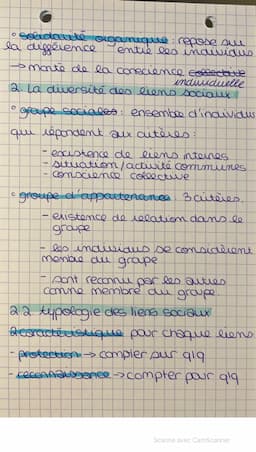 ° solidarité organique : repose sur
la différence entre les individus
→ monté de la conscience collective
individuelle
2. La diversité des liens sociaux
° groupe sociales : ensemble d'individus
qui répondent aux critères :
- existence de liens internes
- situation/activité communes
- conscience collective
° groupe d'appartenance : 3 critères.
- existence de relation dans le
groupe
- les individus se considèrent
membre du groupe
- sont reconnu par les autres
comme membre du groupe
2.2 typologie des liens sociaux
2 caractéristique pour chaque liens
- protection → compter sur qlq
- reconnaissance → compter pour qlq
Scanné avec CamScanner